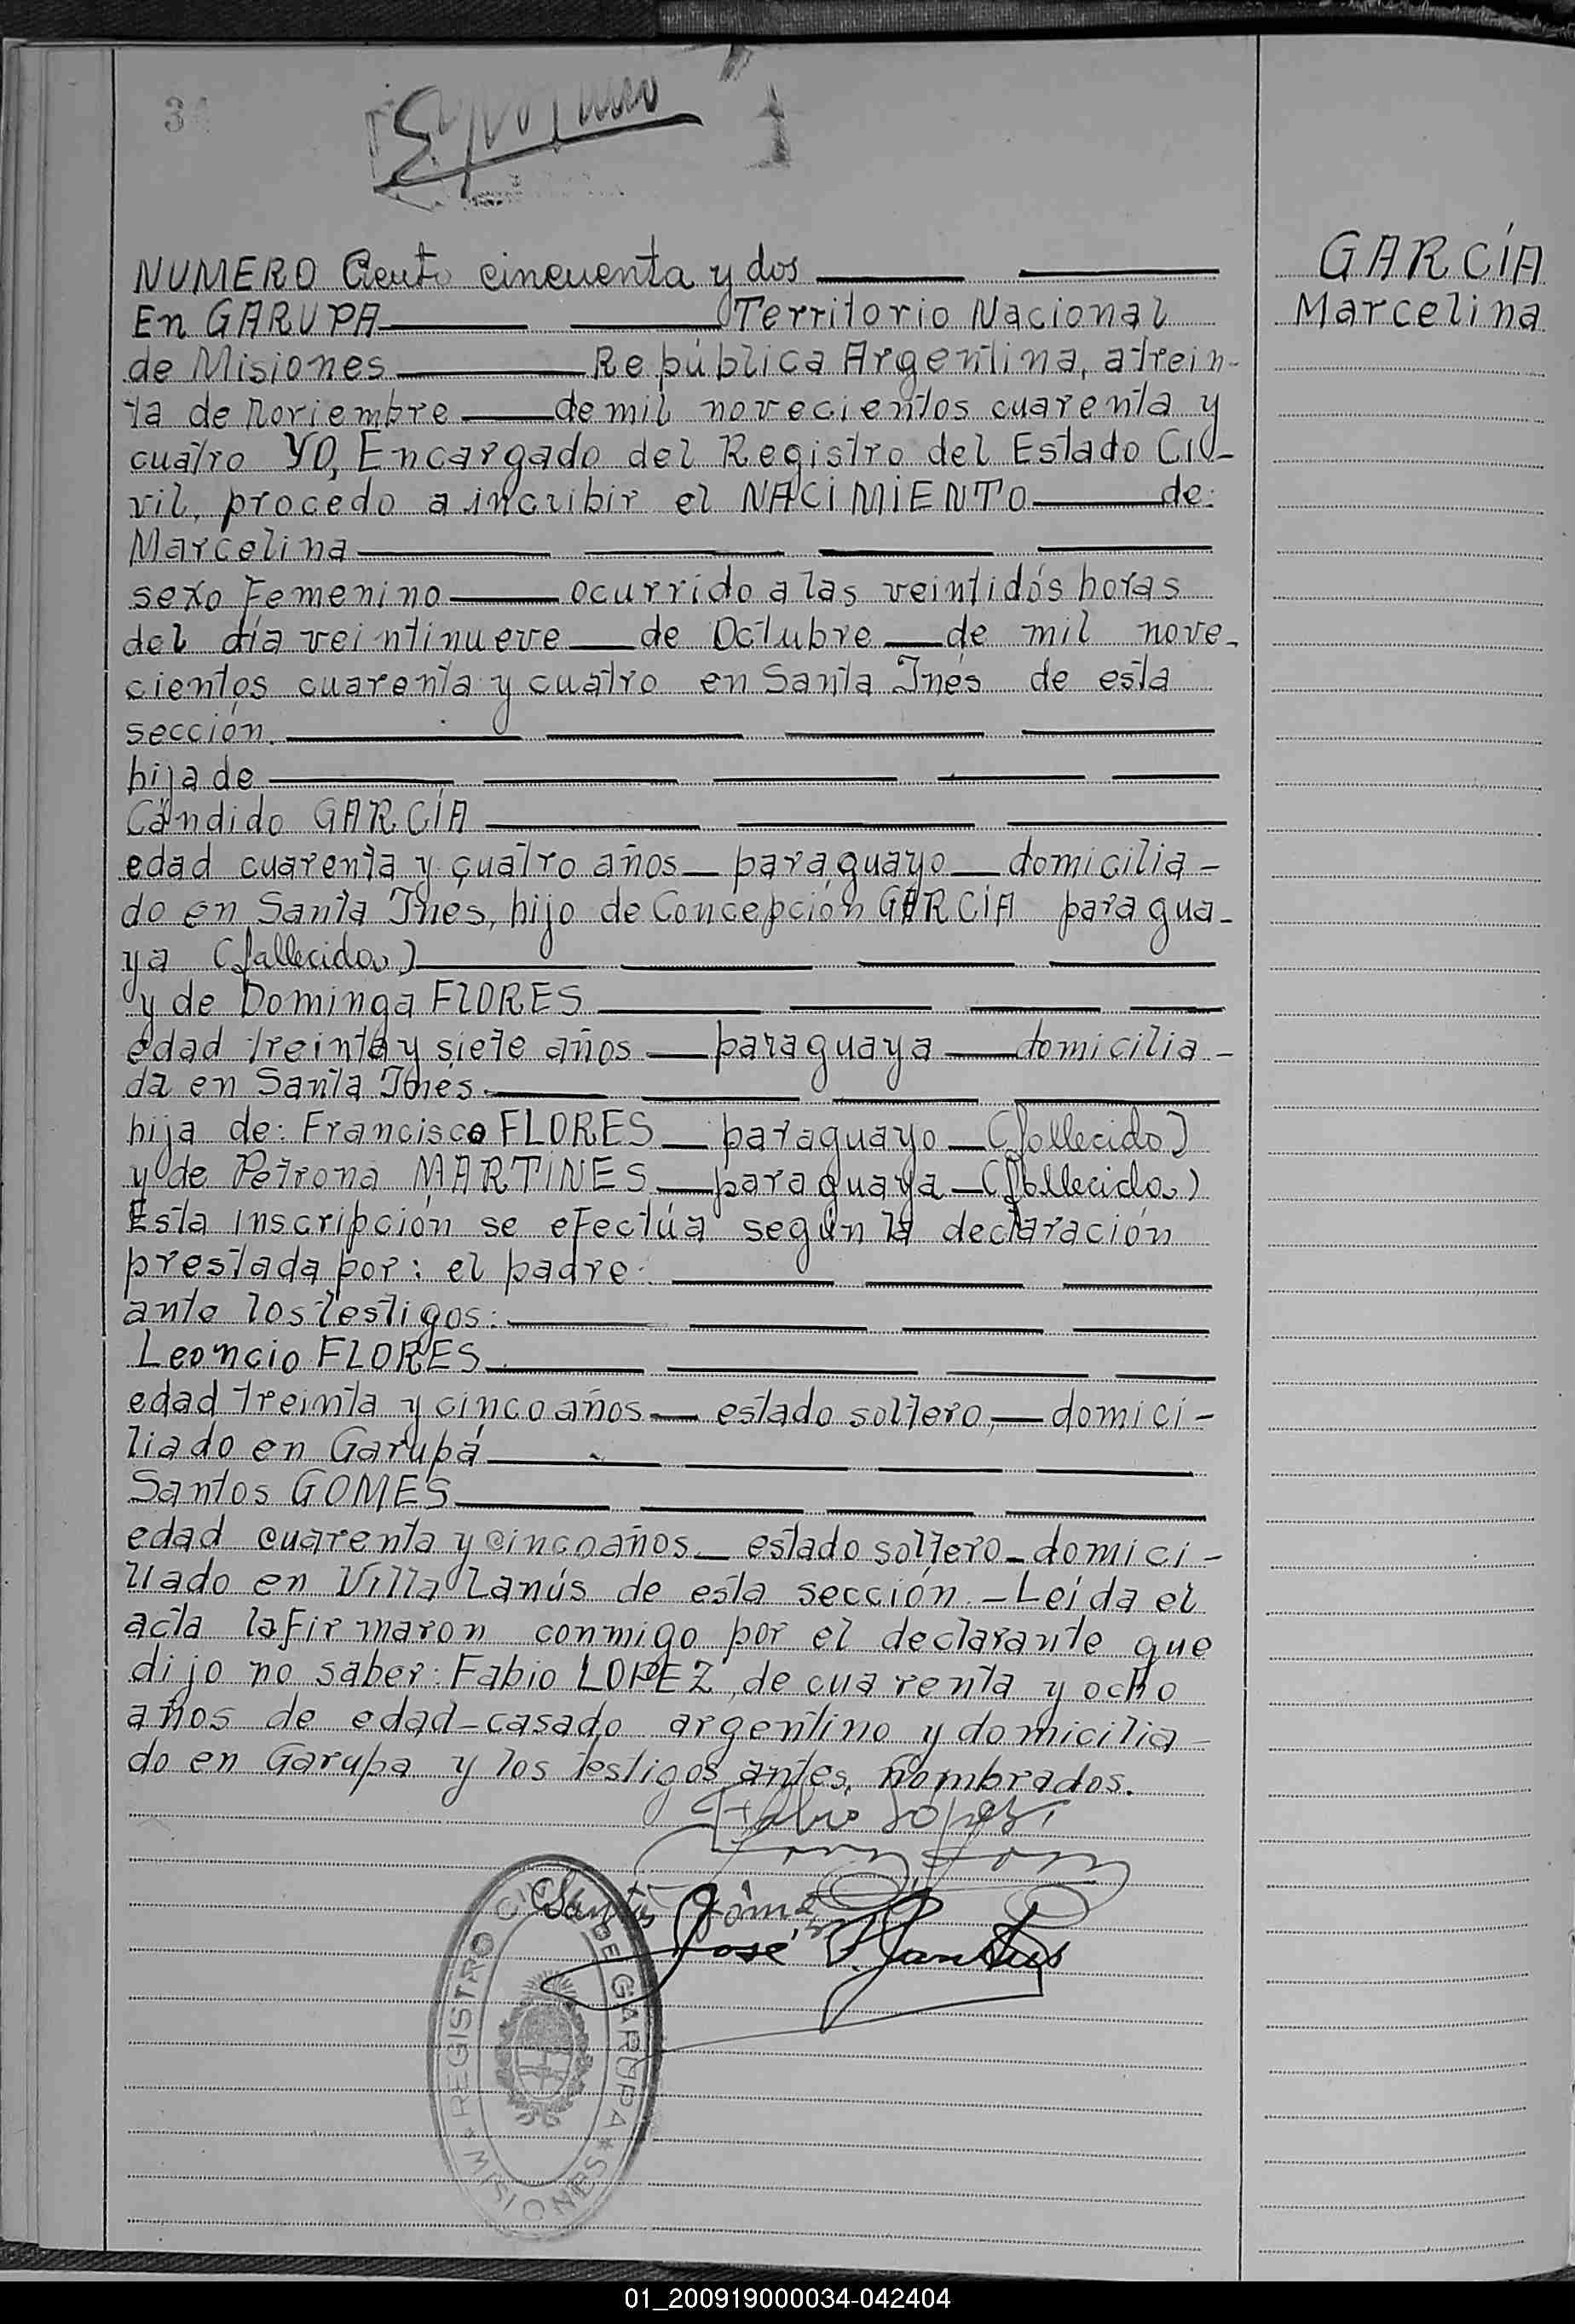 3
NUMERO Ciento cincuenta y dos
GARCÍA
En GARUPA Territorio Nacional
Marcelina
de Misiones República Argentina, a trein-
ta de Noviembre de mil novecientos cuarenta y
cuatro YO, Encargado del Registro del Estado Ci-
vil, procedo a incribir el NACIMIENTO de:
Marcelina
sexo Femenino ocurrido a las veintidós horas
del día veintinueve de Octubre de mil nove-
cientos cuarenta y cuatro en Santa Inés de esta
sección.
hija de
Cándido GARCÍA
edad cuarenta y cuatro años paraguayo domicilia-
do en Santa Ines, hijo de Concepción GARCÍA paragua-
ya (fallecida)
y de Dominga FLORES
edad treinta y siete años paraguaya domicilia-
da en Santa Inés.
hija de: Francisco FLORES paraguayo (fallecido)
y de Petrona MARTINES paraguaya (fallecida)
Esta inscripción se efectúa según la declaración
prestada por: el padre.
ante los testigos:
Leoncio FLORES
edad treinta y cinco años estado soltero, domici-
liado en Garupá
Santos GOMES
edad cuarenta y cinco años estado soltero domici-
liado en Villa Lanús de esta sección. Leída el
acta la firmaron conmigo por el declarante que
dijo no saber: Fabio LOPEZ, de cuarenta y ocho
años de edad casado argentino y domicilia-
do en Garupa y los testigos antes nombrados.
Fabio Lopez
Santos Gómez
José
REGISTRO CIVIL DE GARUPA * MISIONES *
01_200919000034-042404